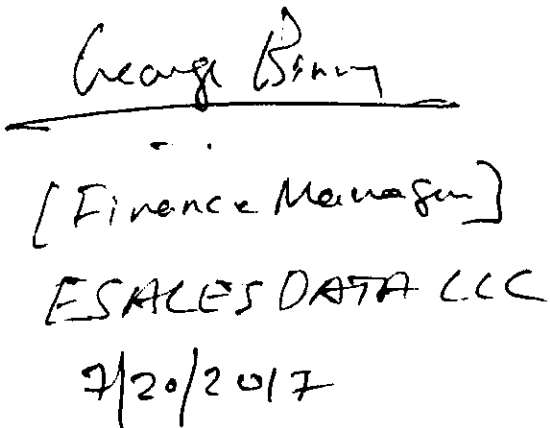 George Binny
[Finance Manager]
ESALES DATA LLC
7/20/2017